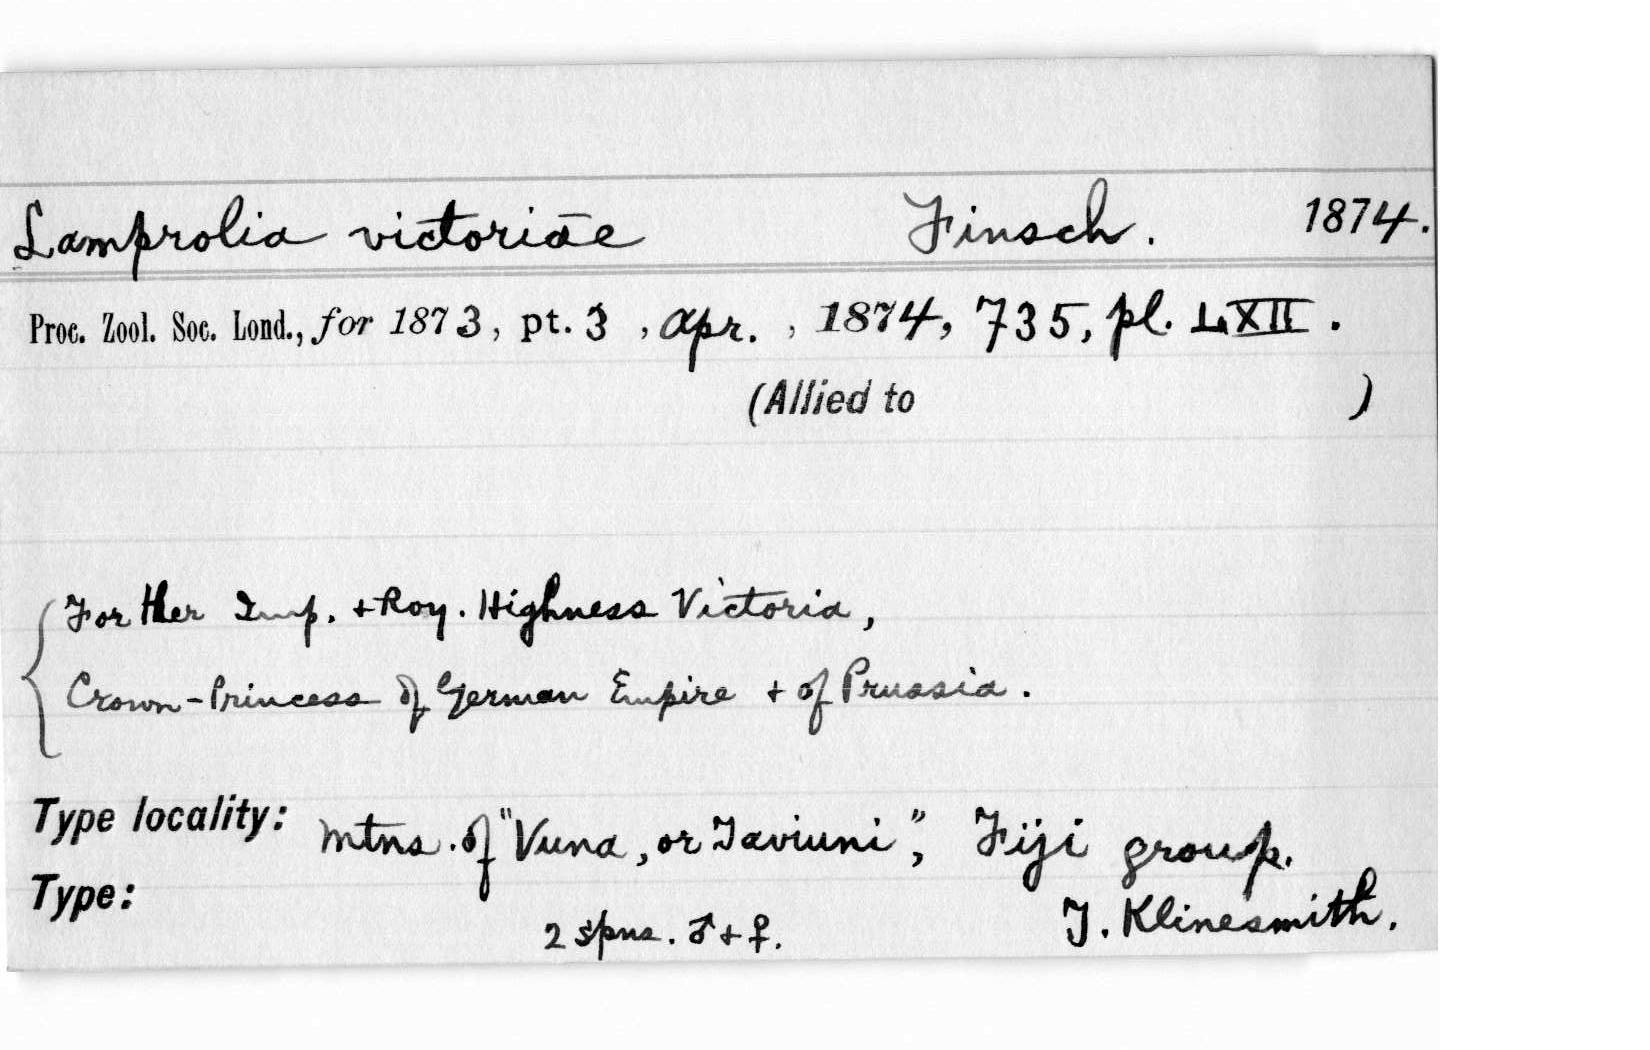 Lamprolia victoriae Finsch. 1874.
Proc. Zool. Soc. Lond., for 1873, pt. 3, Apr., 1874, 735, pl. LXII.
(Allied to )
For Her Imp. + Roy. Highness Victoria,
Crown-Princess of German Empire + of Prussia.
Type locality: Mtns. of "Vuna, or Taviuni", Fiji group.
Type:
2 spns. ♂ + ♀. T. Klinesmith.